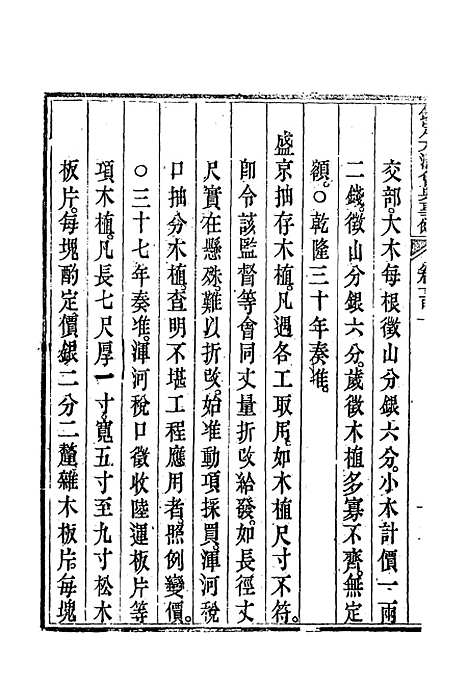 交部。大木每根徵山分銀六分。小木計價一兩
二錢。徵山分銀六分。歲徵木植多寡不齊。無定
額。○乾隆三十年奏准。
盛京抽存木植。凡遇各工取用。如木植尺寸不符。
卽令該監督等會同丈量折改給發。如長徑丈
尺實在懸殊難以折改。始准動項採買。渾河稅
口抽分木植。查明不堪工程應用者。照例變價。
○三十七年奏准。渾河稅口徵收陸運板片等
項木植。凡長七尺厚一寸。寬五寸至九寸松木
板片。每塊酌定價銀二分二釐。雜木板片。每塊